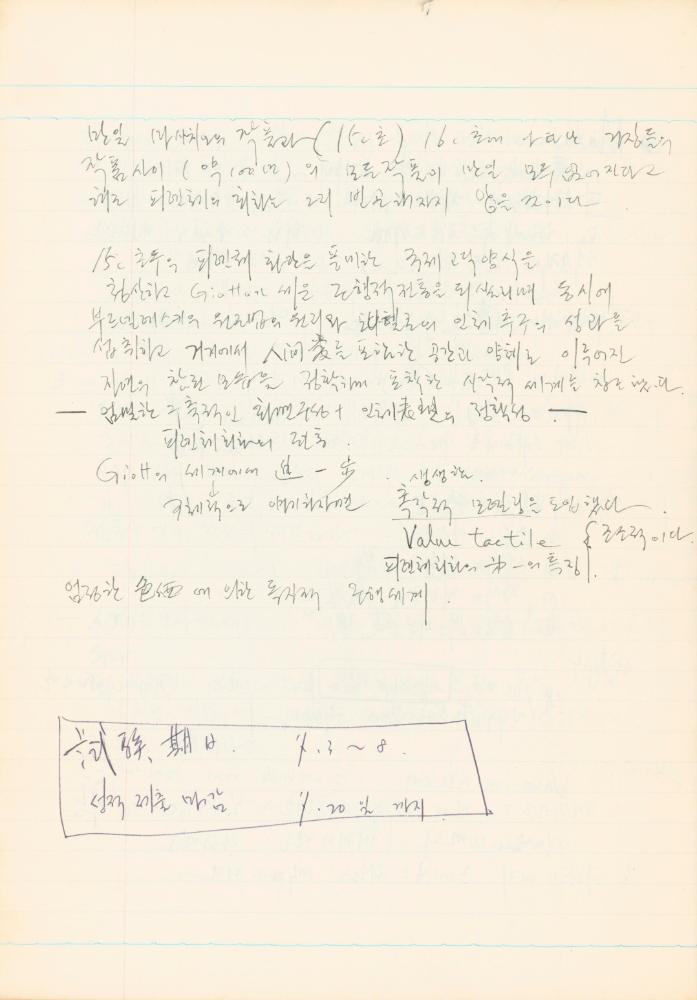 만일 마사치오의 작품과 (15c초) 16c 초에 나타난 거장들의
작품 사이 (약 100년)의 모든 작품이 만일 모두 없어진다고
해도 피렌체의 회화는 그리 변
않을 것이다
15c 초두의 피렌체 화단은 풍미한 국제고딕양식을
청산하고 Giotto가 세운 조형적 전통을 되살리며 동시에
부르넬레스케의 원근법의 원리와 인체 추구의 성과을
섭취하고 거기에서 人間像를 포함한 공간과 양체로 이루어진
자연의 참된 모습을 정확하게 포착한 시각적 세계를 창조했다.
— 엄밀한 구축적인 화면구성 + 인체表現의 정확성 —
피렌체회화의 전통.
Giotto의 세계에서 進一步. 생생한
구체적으로 얘기하자면 촉각적 모델링을 도입했다.
Value tactile { 조소적이다.
피렌체회화의 第一의 특징.
엄정한 色価에 의한 독자적 조형세계.
試驗期日. 3~8.
성적 제출 마감 20일 까지